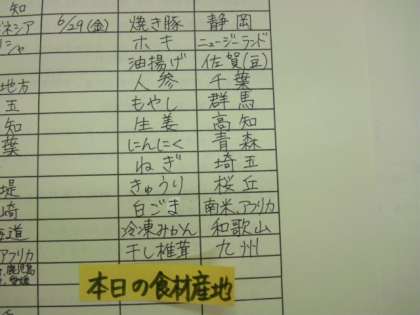 知
ネシア 6/29(金) 焼き豚 静岡
シャ ホキ ニュージーランド
油揚げ 佐賀(豆)
地方 人参 千葉
五 もやし 群馬
知 生姜 高知
葉 にんにく 青森
ねぎ 埼玉
堤 きゅうり 桜丘
崎 白ごま 南米、アフリカ
海道 冷凍みかん 和歌山
アフリカ 干し椎茸 九州
鹿児島
愛媛
本日の食材産地